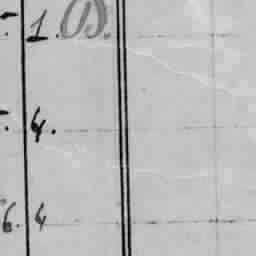 1. B.
4.
6. 4